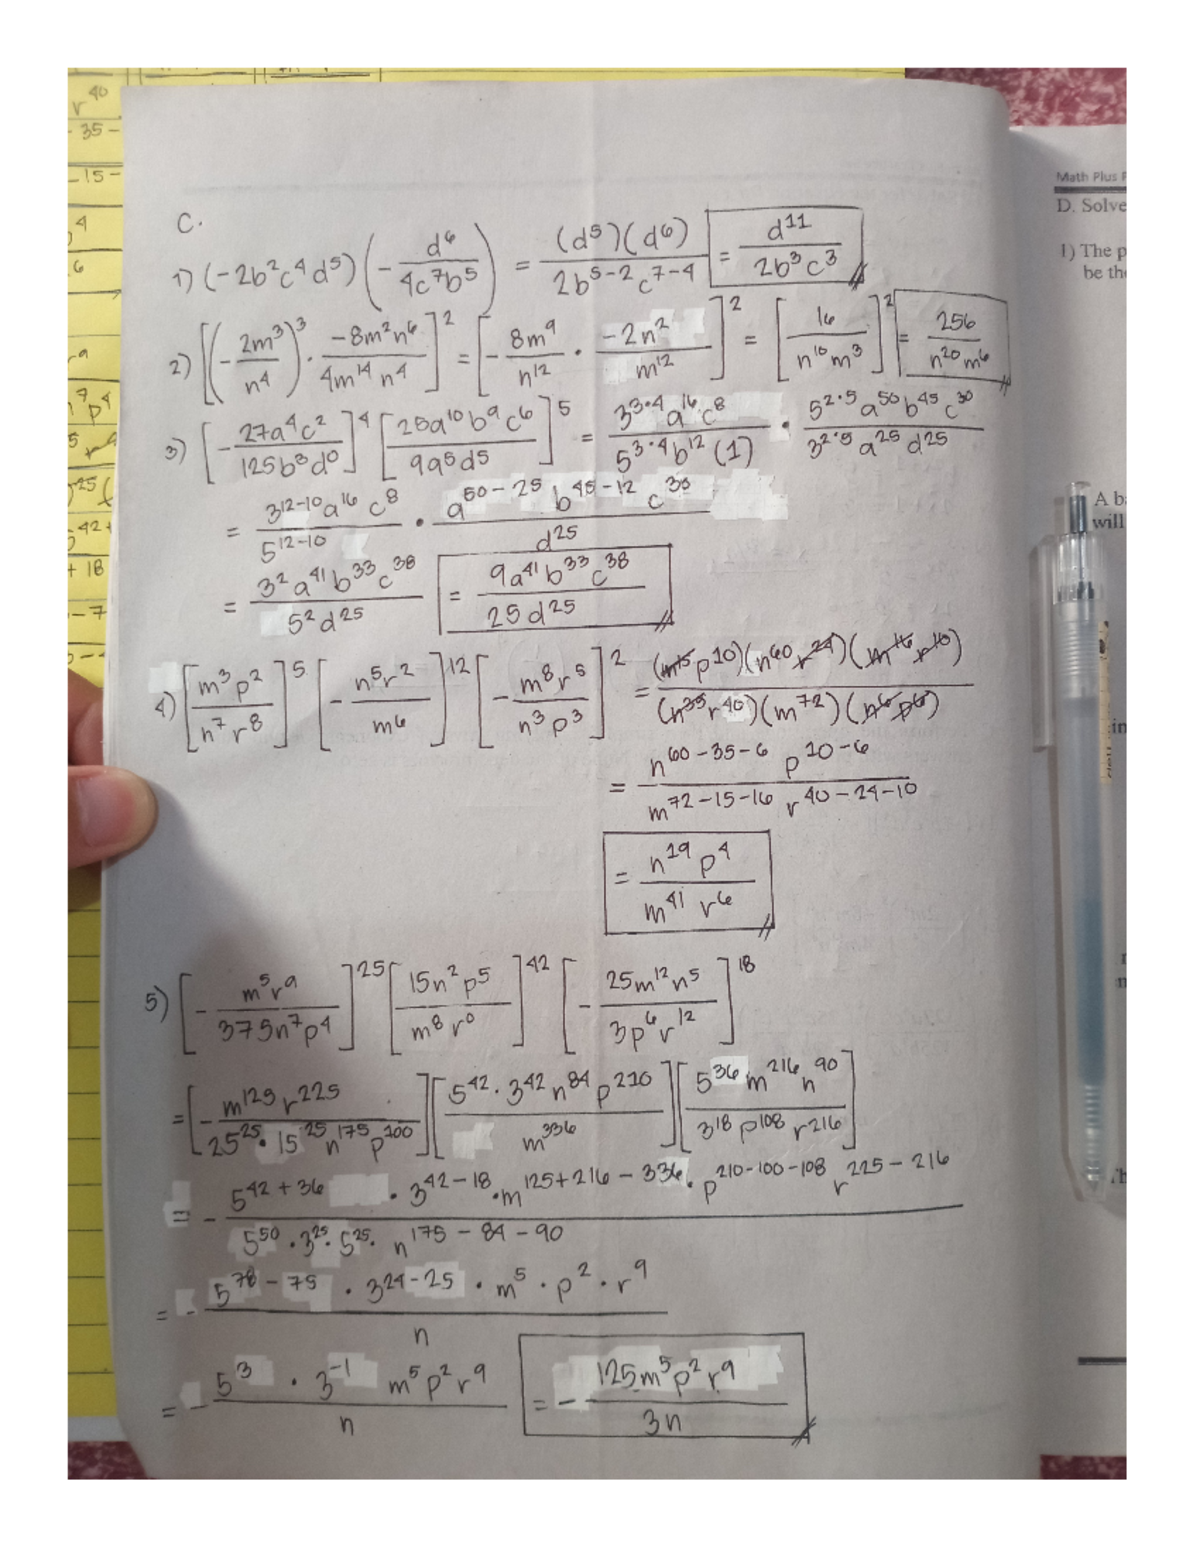 r^40
- 35 -
- 15 -
4
6
C.
1) (-2b^2c^4d^5)(- d^6 / 4c^7b^5) = (d^5)(d^6) / 2b^5-2 c^7-4 = d^11 / 2b^3c^3
2) [(- 2m^3 / n^4)^3 · -8m^2n^6 / 4m^14 n^4]^2 = [- 8m^9 / n^12 · -2n^2 / m^12]^2 = [16 / n^10 m^3]^2 = 256 / n^20 m^6
3) [- 27a^4c^2 / 125b^3d^0]^4 [25a^10 b^9 c^6 / 9a^5d^5]^5 = 3^3·4 a^16 c^8 / 5^3·4 b^12 (1) · 5^2·5 a^50 b^45 c^30 / 3^2·5 a^25 d^25
= 3^12-10 a^16 c^8 / 5^12-10 · a^50-25 b^45-12 c^30 / d^25
= 3^2 a^41 b^33 c^38 / 5^2 d^25 = 9a^41 b^33 c^38 / 25 d^25
4) [m^3 p^2 / n^7 r^8]^5 [- n^5 r^2 / m^6]^12 [- m^8 r^5 / n^3 p^3]^2 = (m^15 p^10)(n^60 r^24)(m^16 r^10) / (n^35 r^40)(m^72)(n^6 p^6)
= n^60-35-6 p^10-6 / m^72-15-16 r^40-24-10
= n^19 p^4 / m^41 r^6
5) [- m^5r^9 / 375n^7p^4]^25 [15n^2 p^5 / m^8 r^0]^42 [- 25m^12 n^5 / 3p^6 r^12]^18
= [- m^125 r^225 / 25^25 · 15^25 n^175 p^100] [5^42 · 3^42 n^84 p^210 / m^336] [5^36 m^216 n^90 / 3^18 p^108 r^216]
= - 5^42+36 · 3^42-18 · m^125+216-336 · p^210-100-108 r^225-216 / 5^50 · 3^25 · 5^25 · n^175-84-90
= - 5^78-75 · 3^24-25 · m^5 · p^2 · r^9 / n
= - 5^3 · 3^-1 m^5 p^2 r^9 / n = - 125m^5p^2r^9 / 3n
Math Plus
D. Solve
1) The
be
A
will